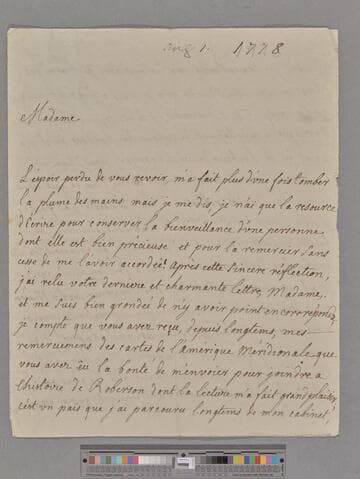 aug 1. 1778
Madame
L'espoir perdu de vous revoir, m'a fait plus d'une fois tomber
la plume des mains, mais je me dis, je n'ai que la resource
d'Ecrire pour conserver la bienveillance d'une personne
dont elle est bien precieuse et pour la remercier sans
cesse de me l'avoir accordée! Après cette sincere reflection,
j'ai relu votre derniere et charmante lettre, Madame,
et me suis bien grondée de n'y avoir point encor repondu,
je compte que vous avez reçu, depuis longtems, mes
remerciemens des cartes de l'Amérique Méridionale que
vous avez eu la bonté de m'envoier pour joindre a
l'histoire de Roberson dont la lecture m'a fait grand plaisir,
c'est un pais que j'ai parcouru longtems de mon cabinet,